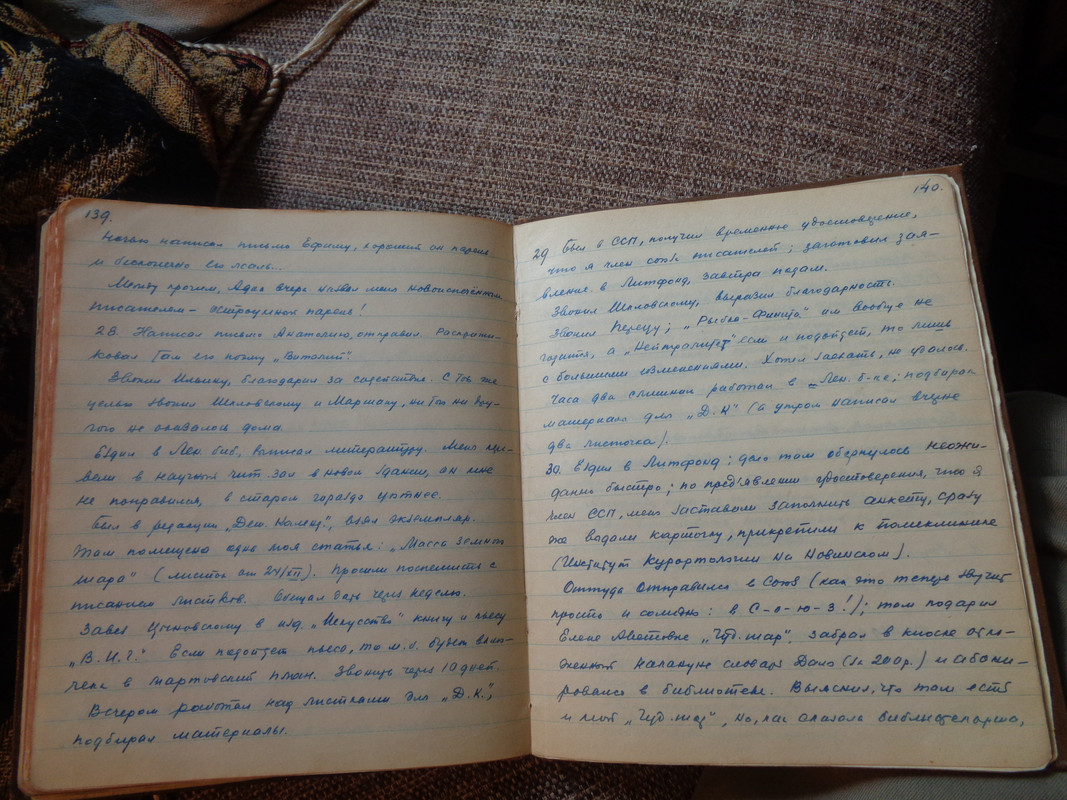 139.
Ночью написал письмо Ефиму, хороший он парень,
и бесконечно его жаль...
Между прочим, Адик вчера назвал меня новоиспечённым
писателем - остроумный парень!
28. Написал письмо Анатолию, отправил. Раскрити-
ковал там его поэму „Виталий".
Звонил Ильину, благодарил за содействие. С той же
целью звонил Шкловскому и Маршаку, ни того ни дру-
гого не оказалось дома.
Ездил в Лен. биб., выписал литературу. Меня при-
вели в научный чит. зал в новом здании, он мне
не понравился, в старом гораздо уютнее.
Был в редакции „Дет. календ.", взял экземпляр.
Там помещена одна моя статья: „Масса земного
шара" (листок от 24/XII). Просили поспешить с
писанием листков. Обещал дать через неделю.
Завез Цыновскому в изд. „Искусство" книгу и пьесу
„В. И. Г." Если подойдет пьеса, то м. б. будет вклю-
чена в мартовский план. Звонить через 10 дней.
Вечером работал над листками для „Д. К.",
подбирал материалы.
140.
29 Был в ССП, получил временное удостоверение,
что я член союза писателей; заготовил зая-
вление в Литфонд, завтра подам.
Звонил Шкловскому, выразил благодарность.
Звонил Перецу; „Рыбка-Финита" им вообще не
годится, а если и подойдет, то лишь
с большими изменениями. Хотел заехать, не удалось.
Часа два с лишним работал в Лен. б-ке; подбирал
материал для „Д. К" (а утром написал вчерне
два листочка).
30. Ездил в Литфонд; дело там обернулось неожи-
данно быстро; по пред'явлении удостоверения, что я
член ССП, меня заставили заполнить анкету, сразу
же выдали карточку, прикрепили к поликлинике
(Институт Курортологии на Новинском).
Оттуда отправился в Союз (как это теперь звучит
просто и солидно: в С-о-ю-з!); там подарил
Елене Аветовне „Чуд. шар". Забрал в киоске отло-
женный накануне словарь Даля (за 200 р.) и абони-
ровался в библиотеке. Выяснил, что там есть
и мой „Чуд. шар", но, как сказала библиотекарша,